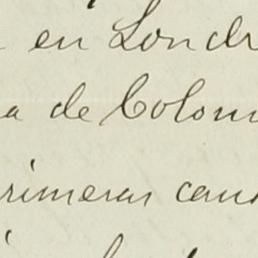 en Londr
a de Colom
rimeras cau